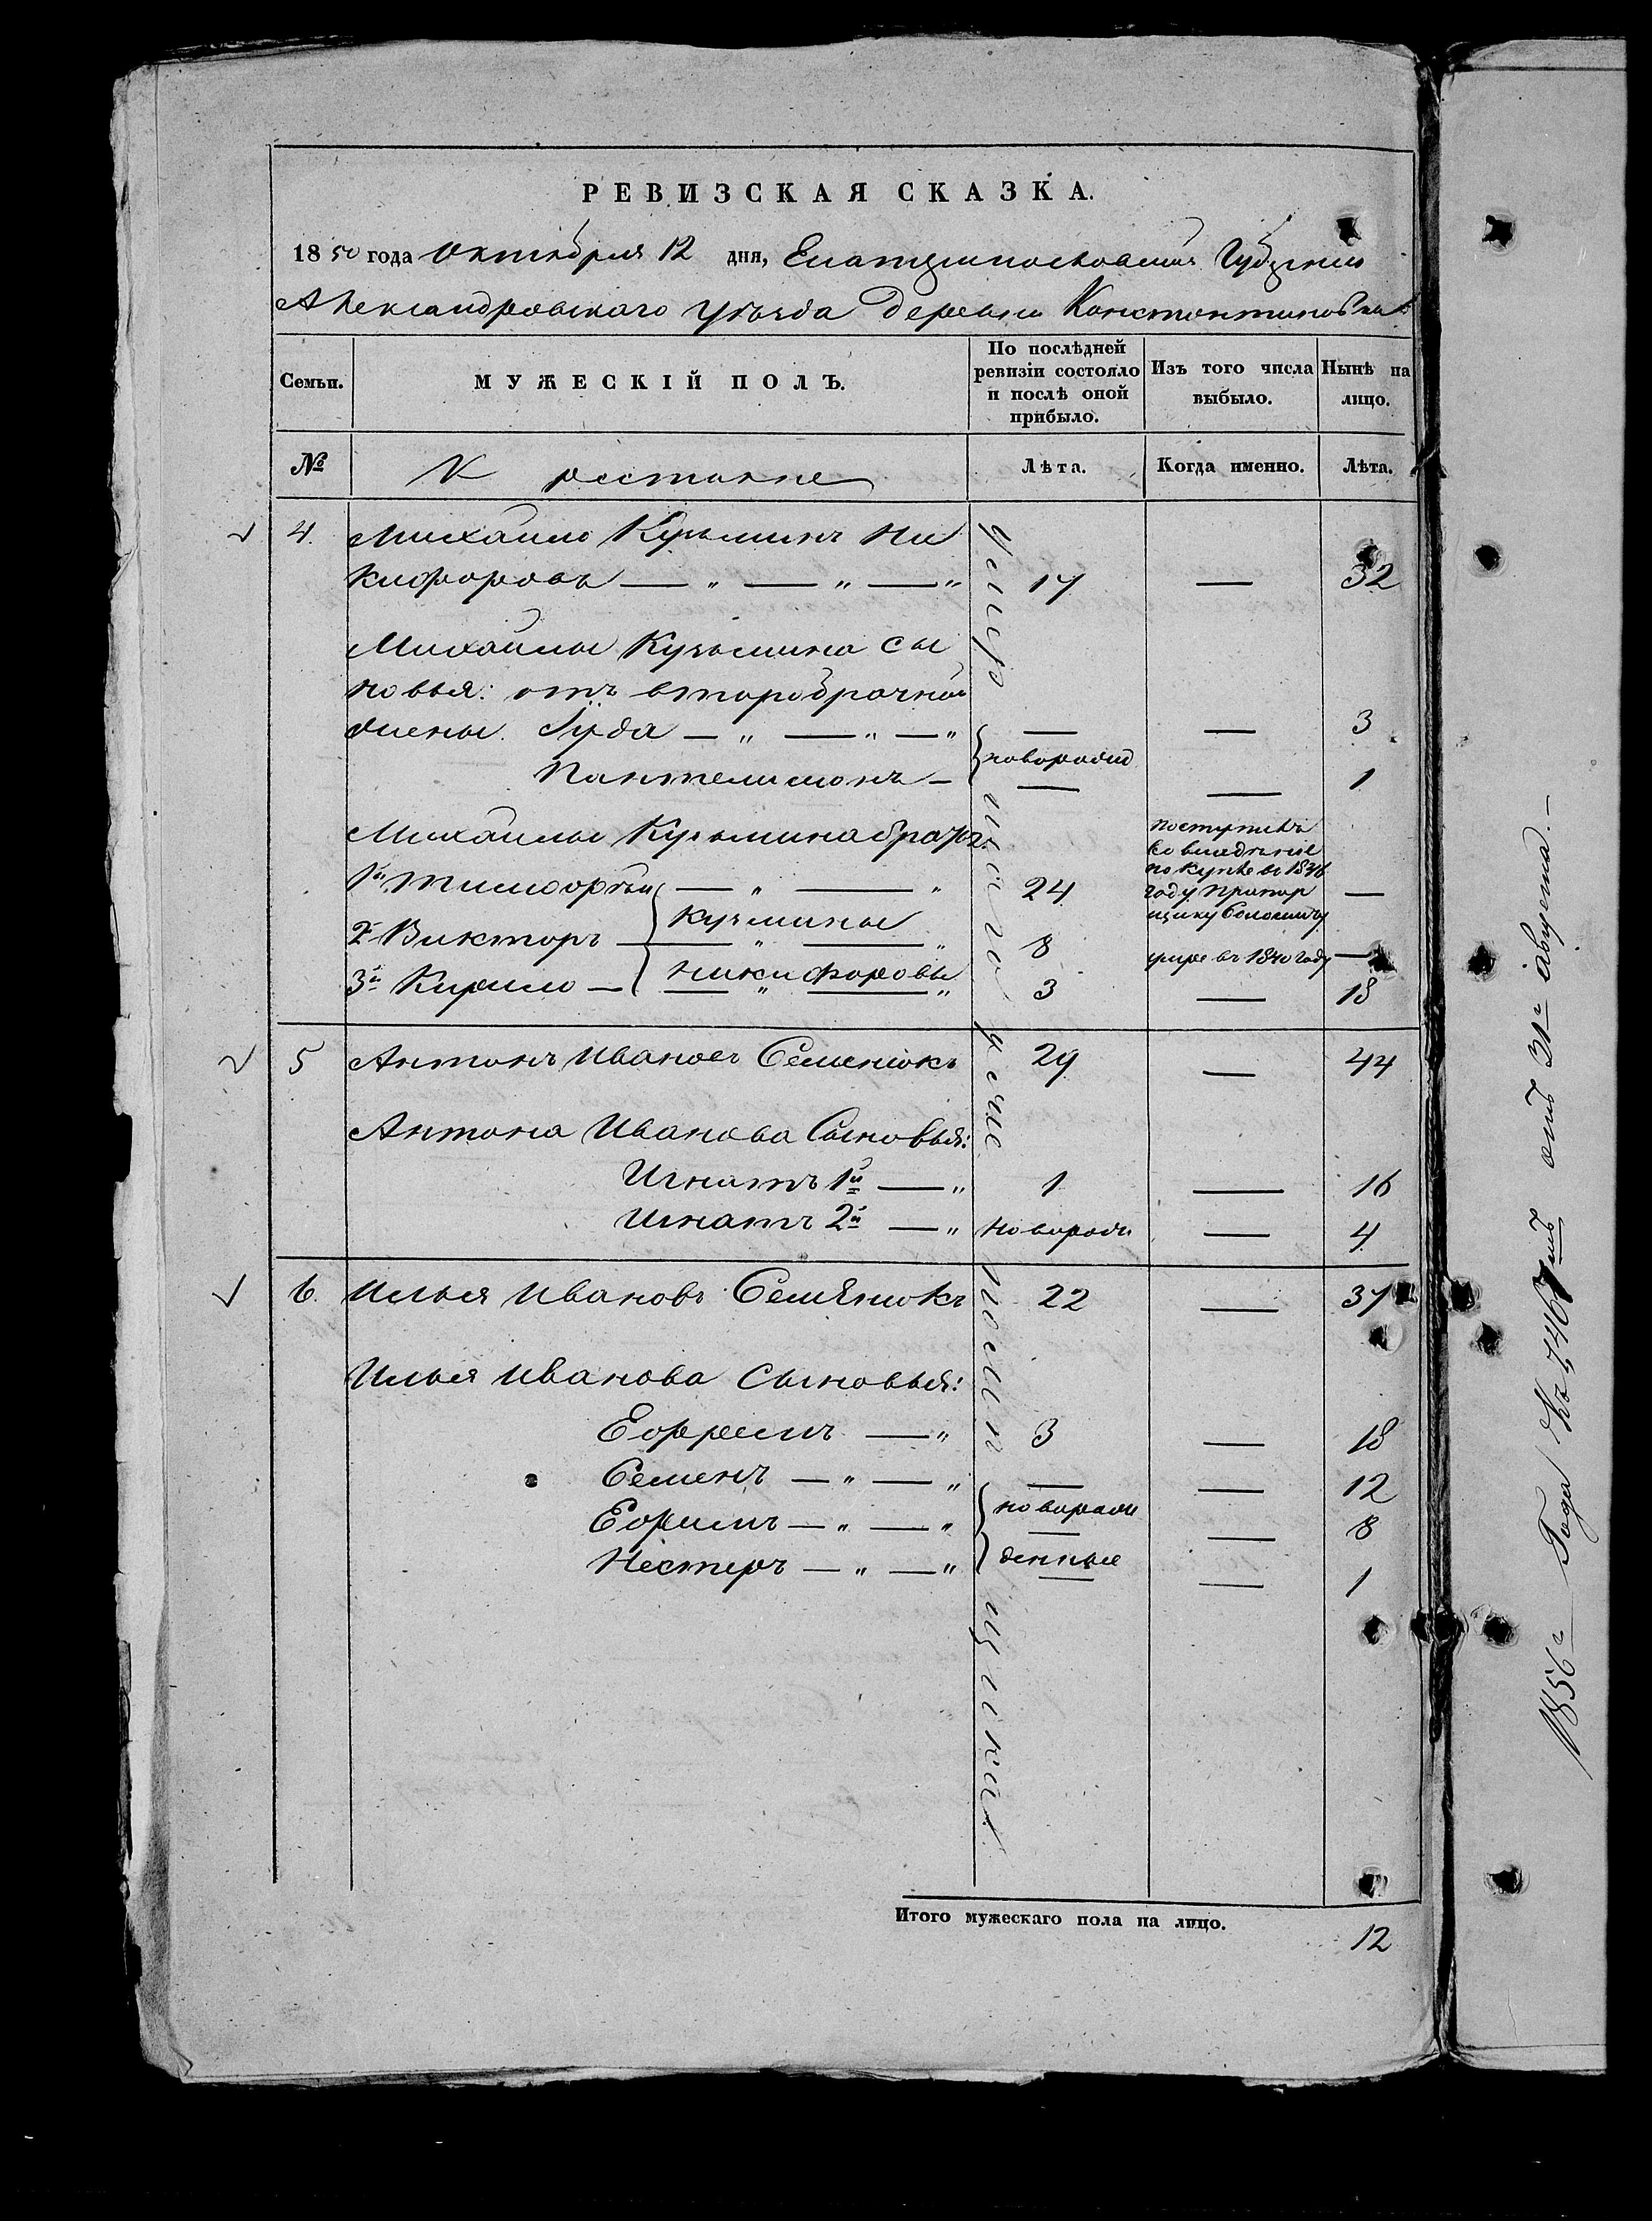 РЕВИЗСКАЯ СКАЗКА.
1850 года Октября 12 дня, Екатеринославской Губернии
Александровскаго уѣзда деревни Константиновки
Семьи. МУЖЕСКІЙ ПОЛЪ. По послѣдней ревизіи состояло и послѣ оной прибыло. Изъ того числа выбыло. Нынѣ на лицо.
№ Крестьяне Лѣта. Когда именно. Лѣта.
4. Михайло Кузьминъ Ни
кифоровъ — „ — „ — „ 17 — 32
Михайлы Кузьмина сы
новья: отъ второбрачной
жены. Іуда — „ — „ — „ — — 3
новорожд
Пантелимонъ — — — 1
Михайлы Кузьмина братья:
1й Тимофѣй — „ — „ 24 поступилъ
во владѣніе
по купле въ 1846
году Прапор
щику —
Кузьмины
2й Викторъ — „ — „ 8 умре въ 1840 году —
Никифоровы
3й Кирило — „ — „ 3 — 18
5 Антонъ Ивановъ Семенюкъ 29 — 44
Антона Иванова Сыновья:
Игнатъ 1й — „ 1 — 16
Игнатъ 2й — „ Новорожд — 4
6. Илья Ивановъ Семянюкъ 22 — 37
Илья Иванова Сыновья:
Ефремъ — „ 3 — 18
Семенъ — „ — „ — — 12
новорож
Ефимъ — „ — „ — — 8
денные
Нестеръ — „ — „ — — 1
Итого мужескаго пола на лицо.
12
помѣщикъ
1856го Года № 7,467мъ отъ 31го августа. —